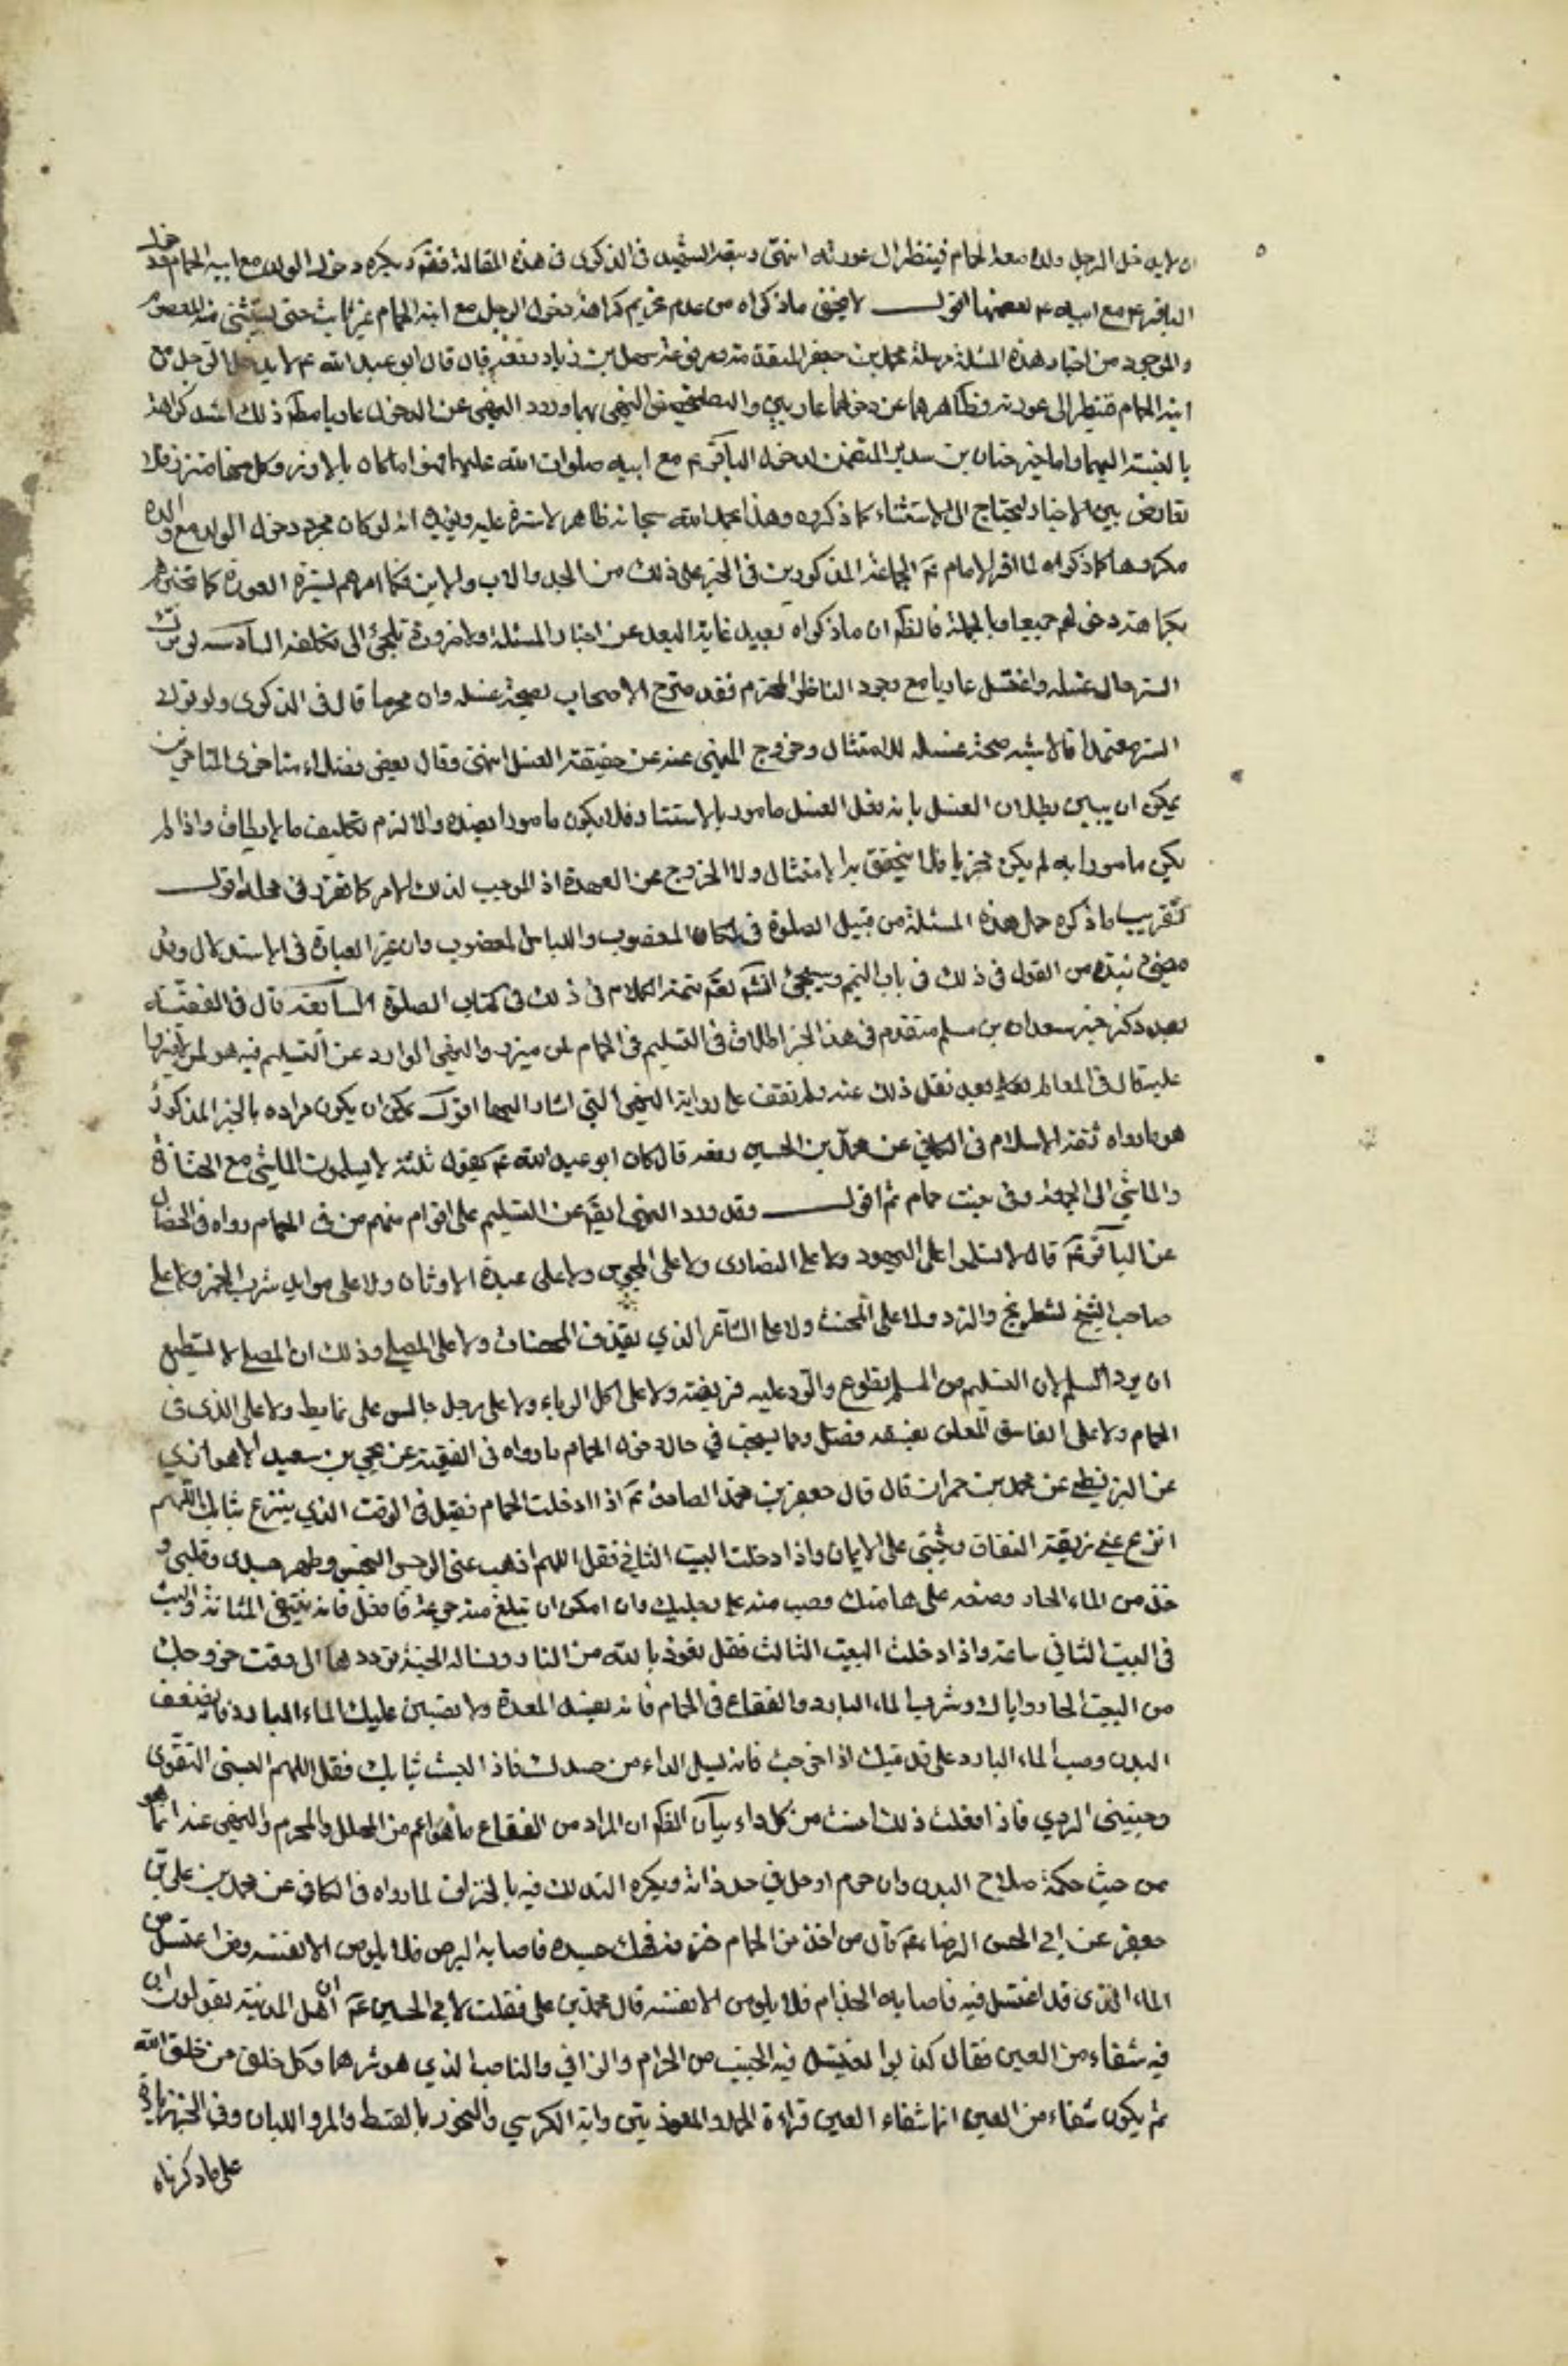 ان لا يدخل الرجل ولده معه الحمام فينظر الى عورته انتهى وسبقه الشهيد فى الذكرى فى هذه المقالة فقم ويكره دخول الولد مع ابيه الحمام دخل
الباقر ع مع ابيه ع لعصمتهما اقول لا يخفى ما ذكراه من عدم كراهة دخول الرجل مع ابنه الحمام غير ثابت حتى يستثنى منه المعصوم
والموجود من اخبار هذه المسئلة مرسلة محمد بن جعفر المتقدمة ومرفوعة سهل بن زياد رفعه قال قال ابو عبد الله ع لا يدخل الرجل مع
ابنه الحمام فينظر الى عورته وظاهرهما عن دخولهما عاريين النهى بهما ورود النهى عن الدخول عاريا مطلقا ذلك اشد كراهة
بالنسبة اليهما واما خبر حنان بن سدير المتضمن لدخول الباقر ع مع ابيه صلوات الله عليهما فهو انما كان بالازر وكل منهما متزر فلا
تعارض بين الاخبار ليحتاج الى الاستثناء كما ذكروه وهذا بحمد الله سبحانه ظاهر لا سترة عليه ويؤيده انه لو كان مجرد دخول الولد مع والده
مكروها كما ذكراه لما اقر الامام ع الجماعة المذكورين فى الخبر على ذلك من الجد والاب والابن فكما امرهم بستر العورة كما
بكراهة دخولهم جميعا وبالجملة فالظم ان ما ذكراه بعيد غاية البعد عن اخبار المسئلة ولا ضرورة تلجئ الى تكلفه السادسه لو ترك
الستر حال غسله واغتسل عاريا مع وجود الناظر المحترم فقد صرح الاصحاب بصحة غسله وان محرما قال فى الذكرى ولو ترك
الستر معتمدا فالاشبه صحة غسله للامتثال وخروج المنهى عنه عن حقيقة الغسل انتهى وقال بعض فضلاء متاخرى المتاخرين
يمكن ان يبين بطلان الغسل بانه الغسل مامور بالاستتار فلا يكون مامورا بضده والا لزم تكليف ما لا يطاق واذا لم
يكن مامورا به لم يكن مجزيا فلا يتحقق به الامتثال ولا الخروج عن العهدة اذ الموجب لذلك الامر كما تقرر فى محله اقول
تقريب ما ذكره جعل هذه المسئلة من قبيل الصلوة فى المكان المغصوب واللباس المغصوب وان غير العبارة فى الاستدلال وقد
مضى نبذة من القول فى ذلك فى باب التيمم وسيجئ انشم تعم تتمة الكلام فى ذلك فى كتاب الصلوة السابعه قال فى الفقيه
بعد ذكر خبر سعدان بن مسلم متقدم فى هذا الخبر اطلاق فى التسليم فى الحمام لمن ميزر والنهى الوارد عن التسليم فيه هو لمن لا ميزر
عليه قال فى المعالم بعد نقل ذلك عنه ولم نقف على رواية النهى التى اشار اليها اقول يمكن ان يكون مراده بالخبر المذكور
هو ما رواه ثقة الاسلام فى الكافى عن محمد بن الحسين رفعه قال كان ابو عبد الله ع يقول ثلثة لا يسلمون الماشى مع الجنازة
والماشى الى الجمعة وفى بيت حمام ثم اقول وقد ورد النهى ايضا عن التسليم على اقوام منهم من فى الحمام رواه فى الخصال
عن الباقر ع قال لا تسلموا على اليهود ولا على النصارى ولا على المجوس ولا على عبدة الاوثان ولا على موايد شرب الخمر ولا على
صاحب الشطرنج والنرد ولا على المخنث ولا على الشاعر الذي يقذف المحصنات ولا على المصلى وذلك ان المصلى لا يستطيع
ان يرد السلم لان التسليم من المسلم تطوع والرد عليه فريضة ولا على اكل الرباء ولا على رجل جالس على غايط ولا على الذى فى
الحمام ولا على الفاسق المعلن بفسقه فصل ومما يستحب في حال دخول الحمام ما رواه فى الفقيه عن يحيى بن سعيد الاهوازي
عن البزنطى عن محمد بن حمران قال قال جعفر بن محمد الصادق ع اذا ادخلت الحمام فقل فى الوقت الذي ينزع ثيابك اللهم
انزع عني ربقة النفاق وثبتنى على الايمان واذا دخلت البيت الثانى فقل اللهم اذهب عنى الرجس النجس وطهر جسدى وقلبى و
خذ من الماء الحار وضعه على هامتك وصب منه على رجليك وان امكن ان تبلع منه جرعة فافعل فانه ينقى المثانة والبث
فى البيت الثاني ساعة واذا دخلت البيت الثالث فقل نعوذ بالله من النار ونساله الجنة ترددهما الى وقت خروجك
من البيت الحار واياك وشرب الماء البارد والفقاع فى الحمام فانه يفسد المعدة ولا تصبن عليك الماء البارد فانه يضعف
البدن وصب الماء البارد على قدميك اذا خرجت فانه يسل الداء من جسدك فاذا لبست ثيابك فقل اللهم البسنى التقوى
وجنبنى الردي فاذا فعلت ذلك امنت من كل داء بيان الظم ان المراد من الفقاع ما هو اعم من المحلل والمحرم والنهى عنه انما هو
من حيث حكمة صلاح البدن وان حرم او حل في حد ذاته ويكره التدلك فيه بالخزف لما رواه فى الكافى عن محمد بن على بن
جعفر عن ابي الحسن الرضا ع قال من اخذ من الحمام خزفة فحك جسده فاصابه البرص فلا يلومن الا نفسه ومن اغتسل من
الماء الذى قد اغتسل فيه فاصابه الجذام فلا يلومن الا نفسه قال محمد بن على فقلت لابي الحسن ع ان اهل المدينة يقولون ان
فيه شفاء من العين فقال كذبوا يغتسل فيه الجنب من الحرام والزاني والناصب الذي هو شرهما وكل خلق من خلق الله
ثم يكون شفاء من العين انما شفاء العين قراءة الحمد والمعوذتين واية الكرسي والبخور بالقسط والمر واللبان وفى الخبر
على ما ذكرناه